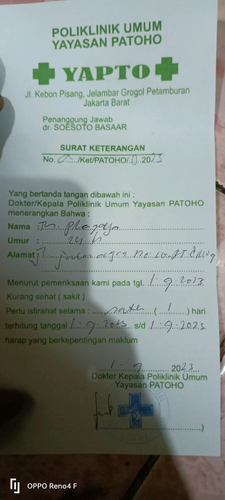 POLIKLINIK UMUM
YAYASAN PATOHO
YAPTO
Jl. Kebon Pisang, Jelambar Grogol Petamburan
Jakarta Barat
Penanggung Jawab
dr. SOESOTO BASAAR
SURAT KETERANGAN
No. /Ket/PATOHO/ .2023
Yang bertanda tangan dibawah ini :
Dokter/Kepala Poliklinik Umum Yayasan PATOHO
menerangkan Bahwa :
Nama
Umur :
Alamat
Menurut pemeriksaan kami pada tgl. 1-9-2023
Kurang sehat ( sakit )
Perlu istirahat selama : ( 1 ) hari
terhitung tanggal 1-9-2023 s/d 1-9-2023
harap yang berkepentingan maklum
1-9 2023
Dokter Kepala Poliklinik Umum
Yayasan PATOHO
OPPO Reno4 F